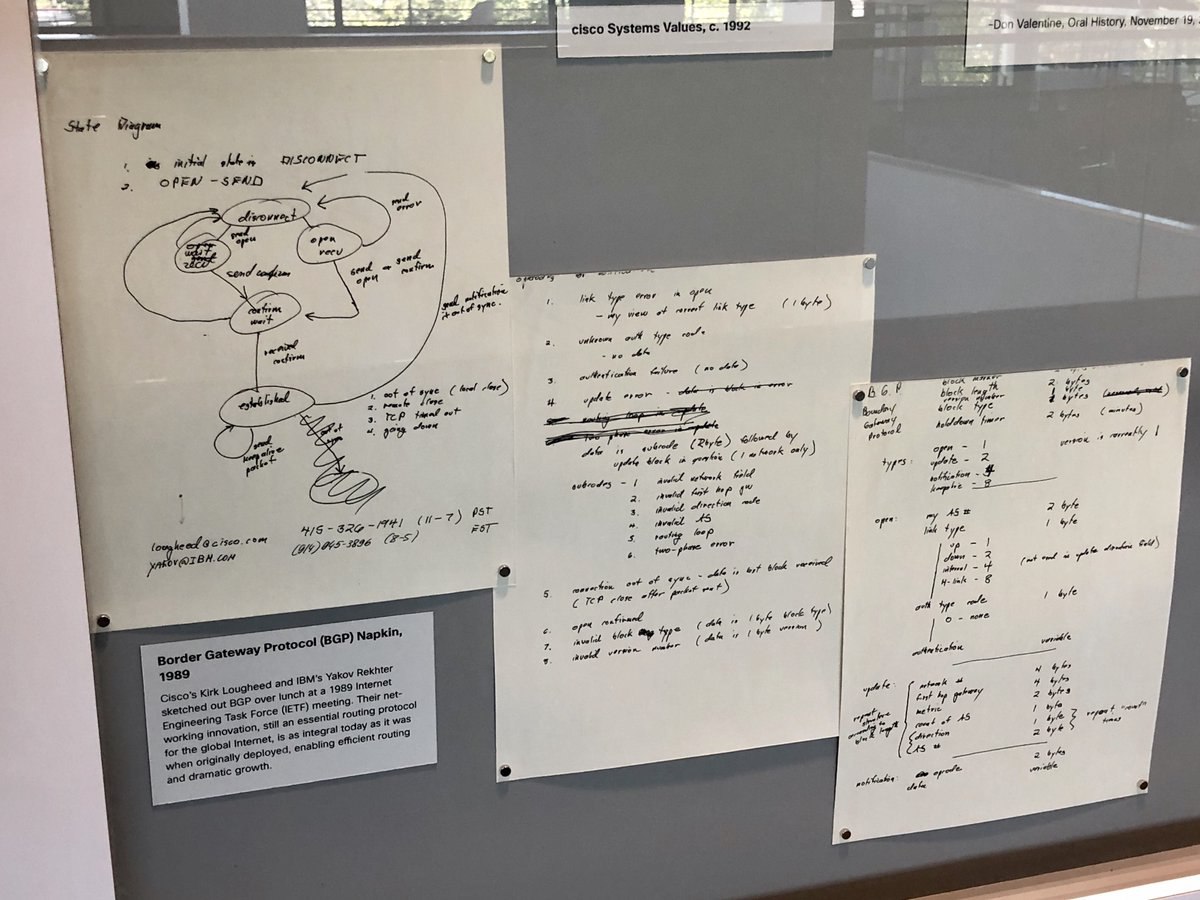 cisco Systems Values, c. 1992
–Don Valentine, Oral History, November 19,
State Diagram
1. initial state is DISCONNECT
2. OPEN - SEND
disconnect
send open
open
wait
open
recv
send
error
send confirm
send or send
open confirm
confirm
wait
received
confirm
send notification
if out of sync.
established
send
keepalive
packet
1. out of sync (local close)
2. remote close
3. TCP timed out
4. going down
415-326-1941 (11-7) PST
(914) 945-3896 (8-5) EST
lougheed@cisco.com
YAKOV@IBM.COM
Border Gateway Protocol (BGP) Napkin,
1989
Cisco's Kirk Lougheed and IBM's Yakov Rekhter
sketched out BGP over lunch at a 1989 Internet
Engineering Task Force (IETF) meeting. Their net-
working innovation, still an essential routing protocol
for the global Internet, is as integral today as it was
when originally deployed, enabling efficient routing
and dramatic growth.
1. link type error in open
- my view of correct link type (1 byte)
2. unknown auth type code
- no data
3. authentication failure (no data)
4. update error - data is block in error
routing loop in update
two phase error in update
data is subcode (2byte) followed by
update block in question (1 network only)
subcodes - 1 invalid network field
2. invalid first hop gw
3. invalid direction code
4. invalid AS
5. routing loop
6. two-phase error
5. connection out of sync - data is last block received
(TCP close after packet sent)
6. open confirmed
7. invalid block type (data is 1 byte block type)
8. invalid version number (data is 1 byte version)
B.G.P. block marker 2 bytes
Boundary block length 2 bytes
Gateway version number 1 byte
Protocol block type 1 bytes
holddown timer 2 bytes (minutes)
version is currently 1
types: open - 1
update - 2
notification - 4
keepalive - 8
open: my AS # 2 byte
link type 1 byte
up - 1
down - 2 (not used in update direction field)
internal - 4
H-link - 8
auth type code 1 byte
0 - none
authentication variable
update: network # 4 bytes
first hop gateway 4 bytes
metric 2 bytes
count of AS 1 byte
direction 1 byte
AS # 2 byte
repeat times
repeat structure according to block length
notification: opcode 2 bytes
data variable